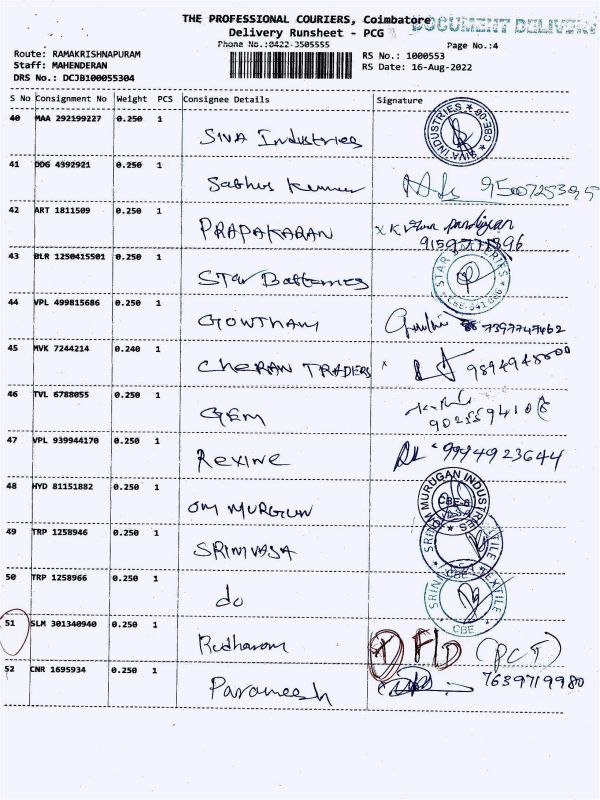 THE PROFESSIONAL COURIERS, Coimbatore
DOCUMENT DELIVERY
Delivery Runsheet - PCG
Phone No.:0422-3505555
Page No.:4
Route: RAMAKRISHNAPURAM
RS No.: 1000553
Staff: MAHENDERAN
RS Date: 16-Aug-2022
DRS No.: DCJB100055304
S No Consignment No Weight PCS Consignee Details Signature
40 MAA 292199227 0.250 1 SIVA Industries SIVA INDUSTRIES
41 DDG 4392921 0.250 1 Sathus Kumar 9500725395
42 ART 1811509 0.250 1 PRAPAKARAN
9159771896
43 BLR 1250415501 0.250 1 STar Batteries STAR BATTERIES CBE-641006
44 VPL 499815686 0.250 1 GOWTHAM 7397747462
45 MVK 7244214 0.240 1 CHERAN TRADERS
46 TVL 6788055 0.250 1 GEM
47 VPL 939944170 0.250 1 Rexine 9944923644
48 HYD 81151882 0.250 1 OM MURGUN OM MURUGAN INDUSTRIES CBE-6
49 TRP 1258946 0.250 1 SRINIVASA
50 TRP 1258966 0.250 1 do CBE
51 SLM 301340940 0.250 1 Rudharam F/D (PCT)
52 CNR 1695934 0.250 1 Parameesh 7639719980